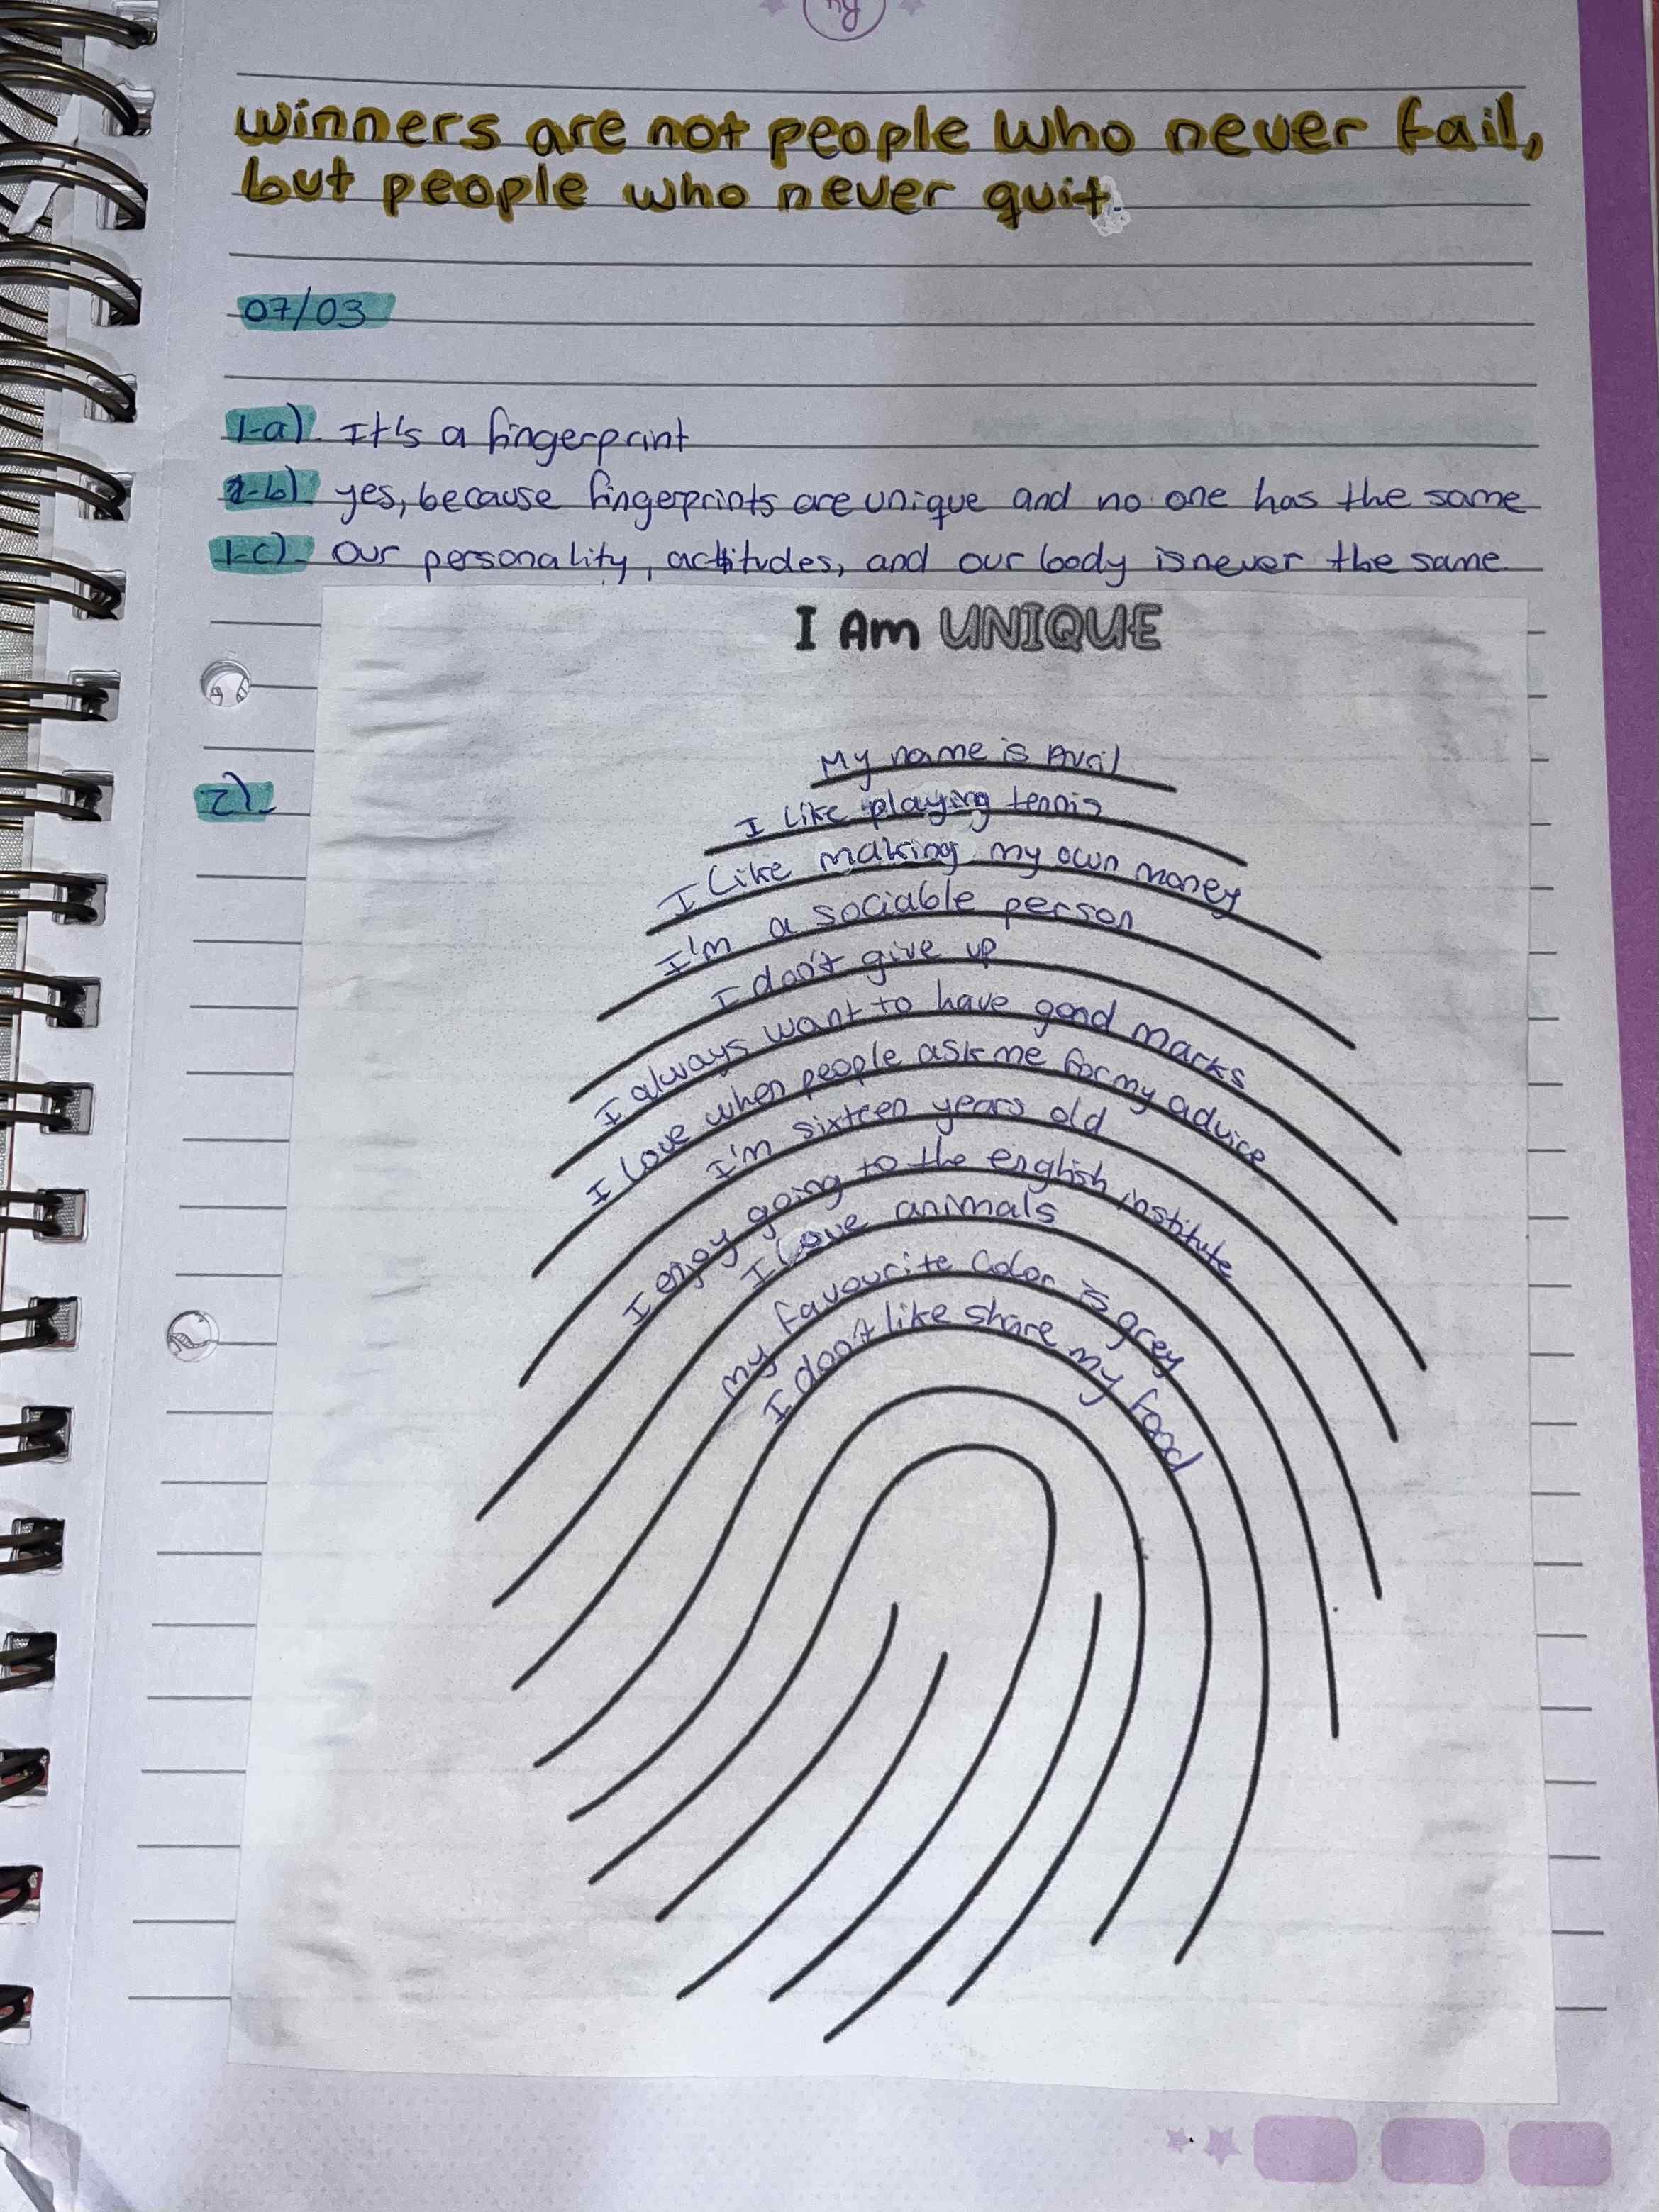 winners are not people who never fail,
but people who never quit.
07/03
1-a). It's a fingerprint
1-b). yes, because fingerprints are unique and no one has the same
1-c). Our personality, actitudes, and our body is never the same
I Am UNIQUE
2).
My name is Avril
I like playing tennis
I like making my own money
I'm a sociable person
I don't give up
I always want to have good marks
I love when people ask me for my advice
I'm sixteen years old
I enjoy going to the english institute
I love animals
my favourite color is grey
I don't like share my food